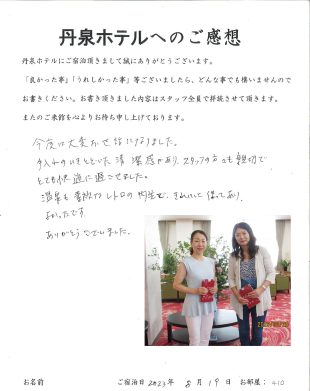 丹泉ホテルへのご感想
丹泉ホテルにご宿泊頂きまして誠にありがとうございます。
「良かった事」「うれしかった事」等ございましたら、どんな事でも構いませんので
お書きください。お書き頂きました内容はスタッフ全員で拝読させて頂きます。
またのご来館を心よりお待ち申し上げております。
今度は大変お世話になりました。
手入れのいきとどいた清潔感があり、スタッフの方々も親切で
とても快適に過ごせました。
温泉も レトロの せ、きれいに 保ってあり、
よかったです
ありがとうございました。
お名前 ご宿泊日 2023 年 8 月 19 日 お部屋： 410